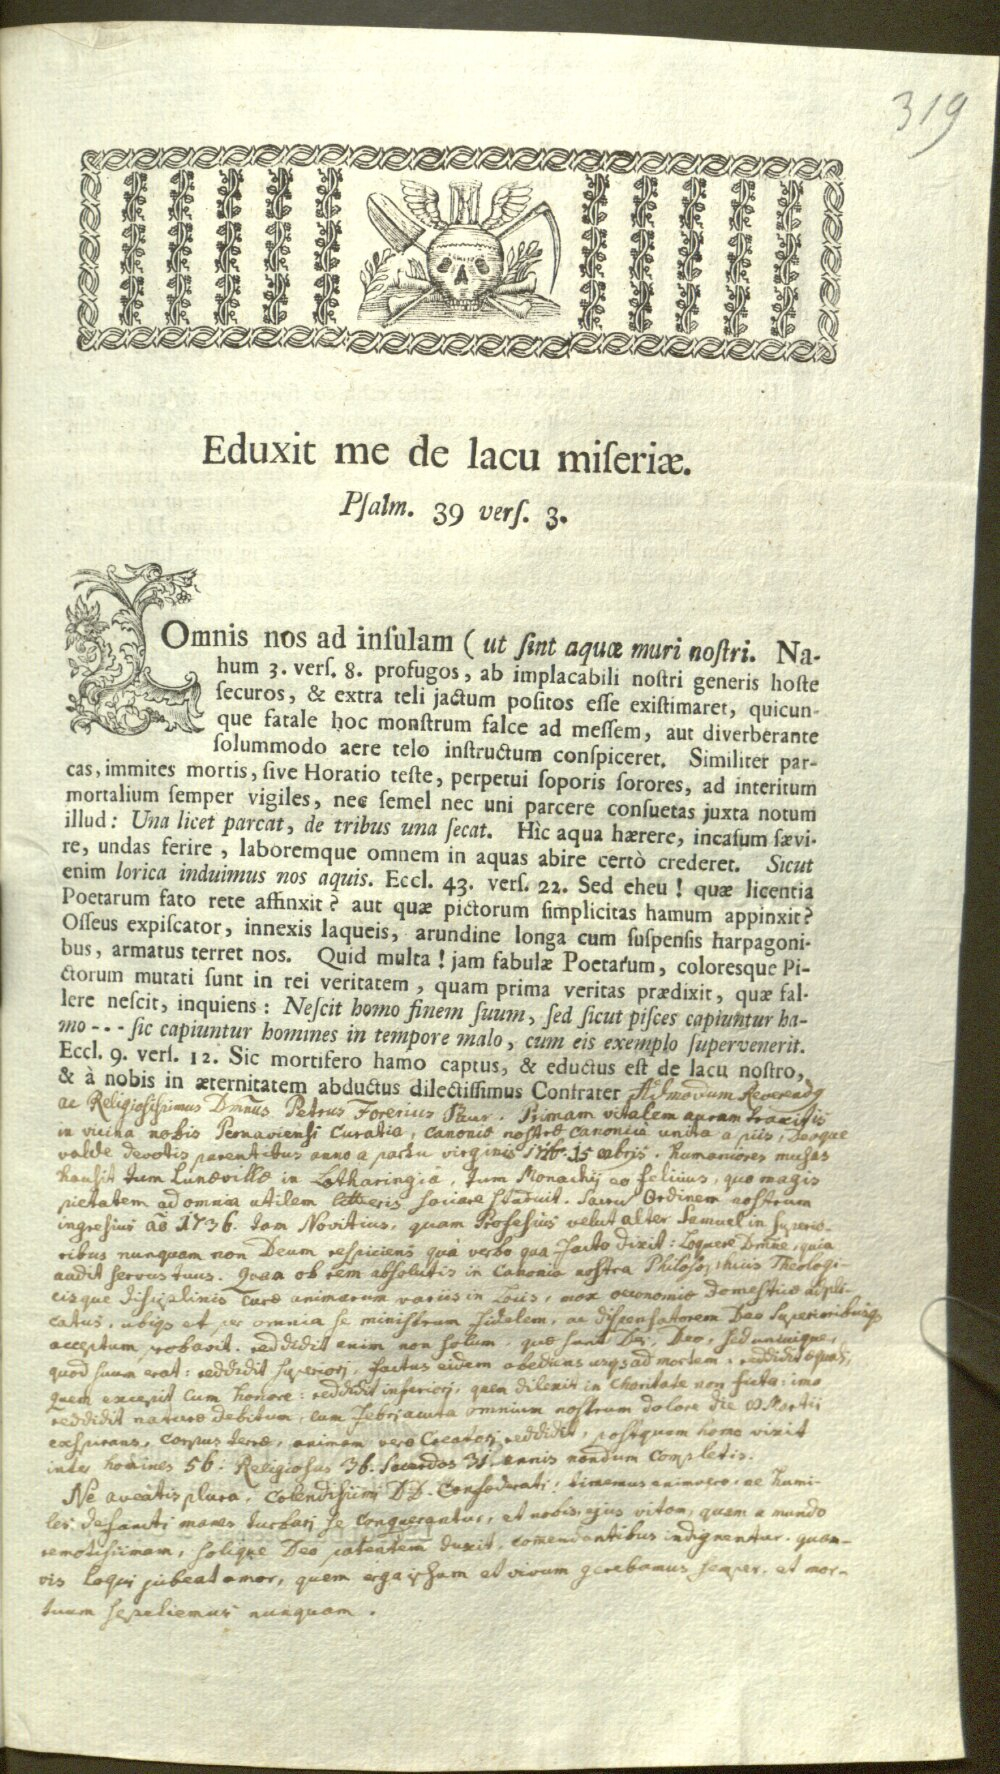 319
Eduxit me de lacu miſeriæ.
Pſalm. 39 verſ. 3.
Omnis nos ad inſulam ( ut ſint aquæ muri noſtri. Na-
hum 3. verſ. 8. profugos, ab implacabili noſtri generis hoſte
ſecuros, & extra teli jactum poſitos eſſe exiſtimaret, quicun-
que fatale hoc monſtrum falce ad meſſem, aut diverberante
ſolummodo aere telo inſtructum conſpiceret. Similiter par-
cas, immites mortis, ſive Horatio teſte, perpetui ſoporis ſorores, ad interitum
mortalium ſemper vigiles, nec ſemel nec uni parcere conſuetas juxta notum
illud: Una licet parcat, de tribus una ſecat. Hìc aqua hærere, incaſum ſævi-
re, undas ferire, laboremque omnem in aquas abire certò crederet. Sicut
enim lorica induimus nos aquis. Eccl. 43. verſ. 22. Sed eheu! quæ licentia
Poetarum fato rete affinxit? aut quæ pictorum ſimplicitas hamum appinxit?
Oſſeus expiſcator, innexis laqueis, arundine longa cum ſuſpenſis harpagoni-
bus, armatus terret nos. Quid multa! jam fabulæ Poetarum, coloresque Pi-
ctorum mutati ſunt in rei veritatem, quam prima veritas prædixit, quæ fal-
lere neſcit, inquiens: Neſcit homo finem ſuum, ſed ſicut piſces capiuntur ha-
mo - - - ſic capiuntur homines in tempore malo, cum eis exemplo ſupervenerit.
Eccl. 9. verſ. 12. Sic mortifero hamo captus, & eductus eſt de lacu noſtro,
& à nobis in æternitatem abductus dilectiſſimus Confrater Admodum Reverendg
ac Religiosissimus Dmñus Petrus Forerius. Primam vitalem auram
in vicina nobis Pernaviensi Curatia, canoniæ nostræ canonicè unita a piis, Deoque
valde devotis parentibus anno a partu virginis 15 humaniores musas
hausit tum Lunævillæ in Lotharingia, tum Monachij eo felicius, quo magis
pietatem ad omnia utilem litteris sociare studuit. Sacrum Ordinem nostrum
ingressus aõ 1736. tam Novitius, quam Professus velut alter Samuel in superio-
ribus nunquam non Deum respiciens quà verbo qua facto dixit: Loquere Dmñe, quia
audit servus tuus. Qua ob rem absolutis in Canonia nostra Philosoph̃icis Theologi-
cisque disciplinis curæ animarum variis in Locis, mox œconomiæ domesticæ appli-
catus, ubiqg et per omnia se ministrum fidelem, ac dispensatorem Deo Superioribusqg
acceptum probavit. reddidit enim non solum, quæ sunt Dei, Deo, sed unicuique,
quod suum erat: reddidit superiori, factus eidem obediens usqg ad mortem: reddidit æquali,
quem excepit cum honore: reddidit inferiori, quem dilexit in charitate non ficta: imo
reddidit naturæ debitum, cum omnium nostrum dolore die Martii
exspirans, corpus terræ, animam verò Creatori reddidit, postquam homo vixit
inter homines 56. Religiosus 36. Sacerdos 31. annis nondum completis.
Ne aveatis plura, Colendissimi DD. Confœderati, timemus enim vero, ne humi-
les defuncti manes turbari se conquerantur, et nobis, ejus vitam, quam a mundo
remotissimam, solique Deo patentem duxit, comẽndantibus indignentur. quam-
vis loqui jubeat amor, quem erga ipsum et vivum gerebamus semper, et mor-
tuum sepeliemus nunquam.